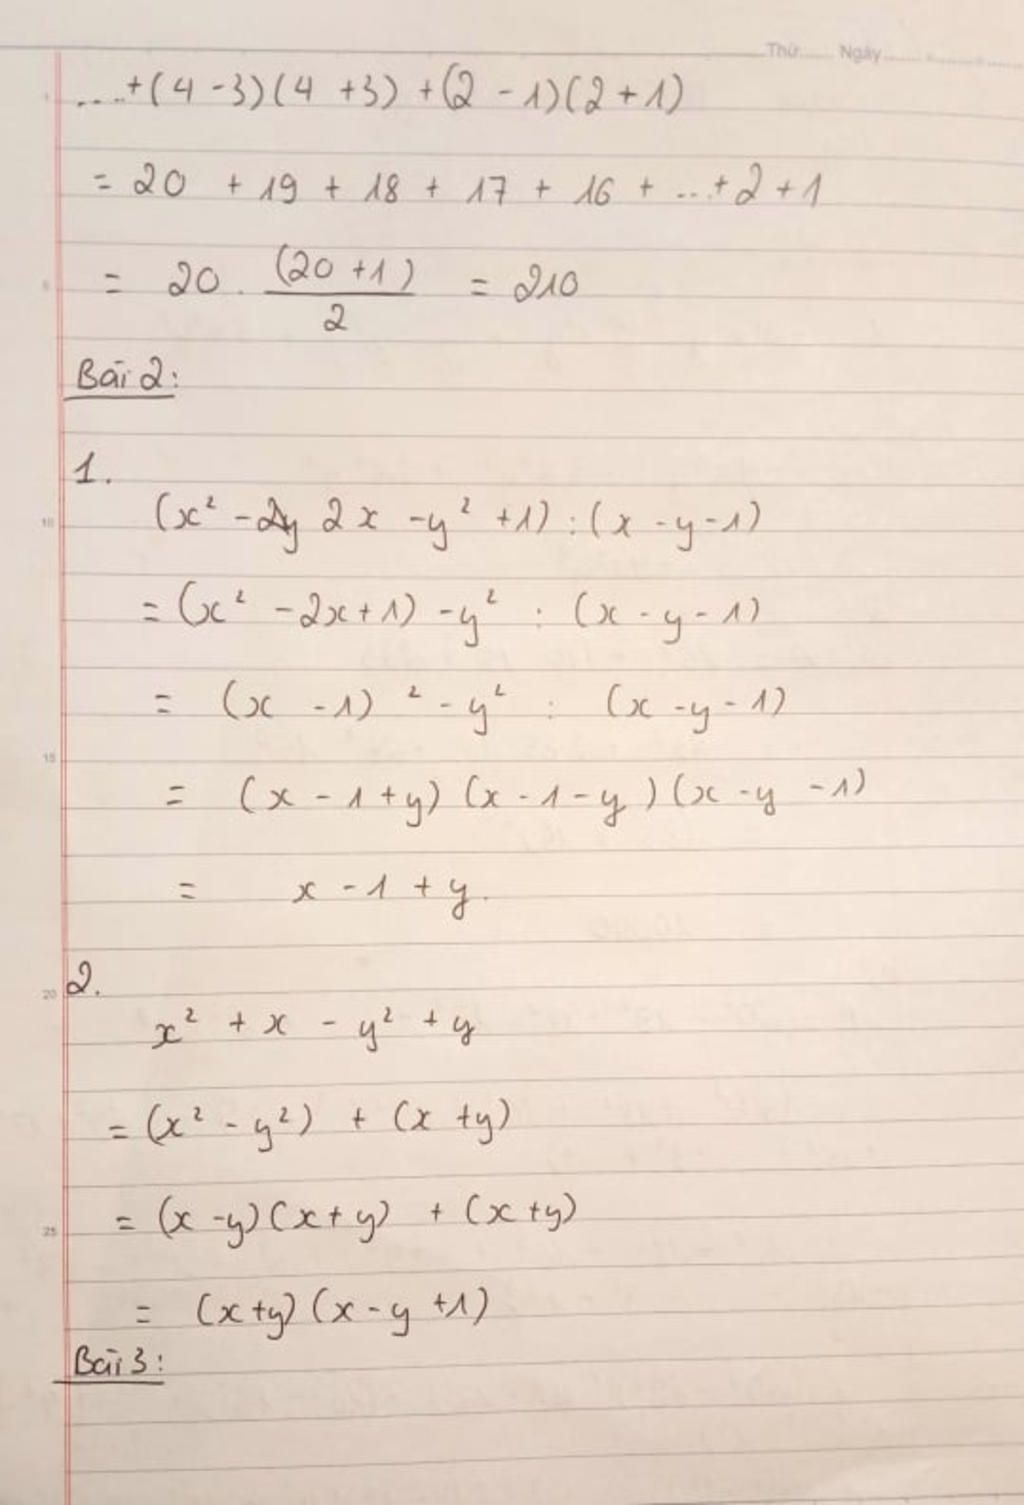 Thứ...... Ngày.............
....+(4-3)(4+3)+(2-1)(2+1)
= 20 + 19 + 18 + 17 + 16 + ...+2+1
= 20 . (20+1)/2 = 210
Bài 2:
1.
(x² - 2x - y² + 1) : (x - y - 1)
= (x² - 2x + 1) - y² : (x - y - 1)
= (x - 1)² - y² : (x - y - 1)
= (x - 1 + y) (x - 1 - y) (x - y - 1)
= x - 1 + y.
2.
x² + x - y² + y
= (x² - y²) + (x + y)
= (x - y)(x + y) + (x + y)
= (x + y) (x - y + 1)
Bài 3: